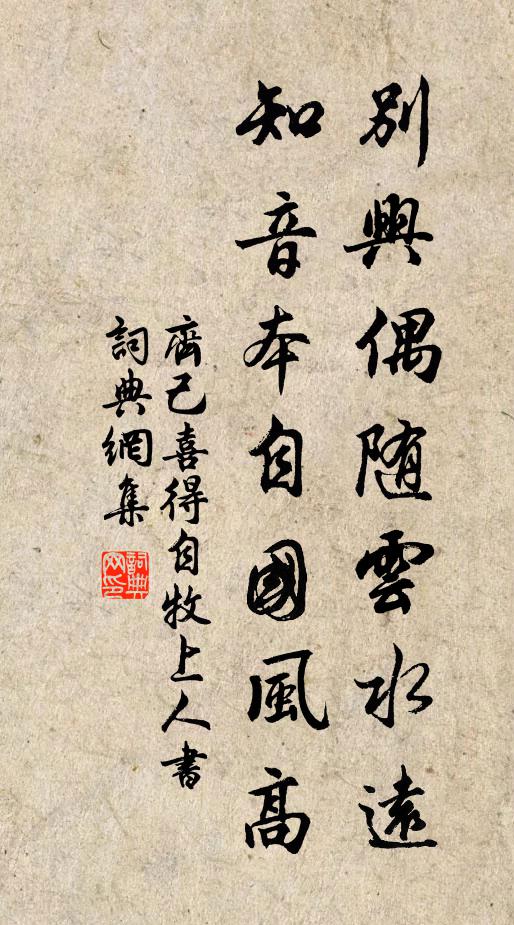 别興偶随雲水遠
知音本自國風高
齊己喜得自牧上人書
詞典網集
詞典网印